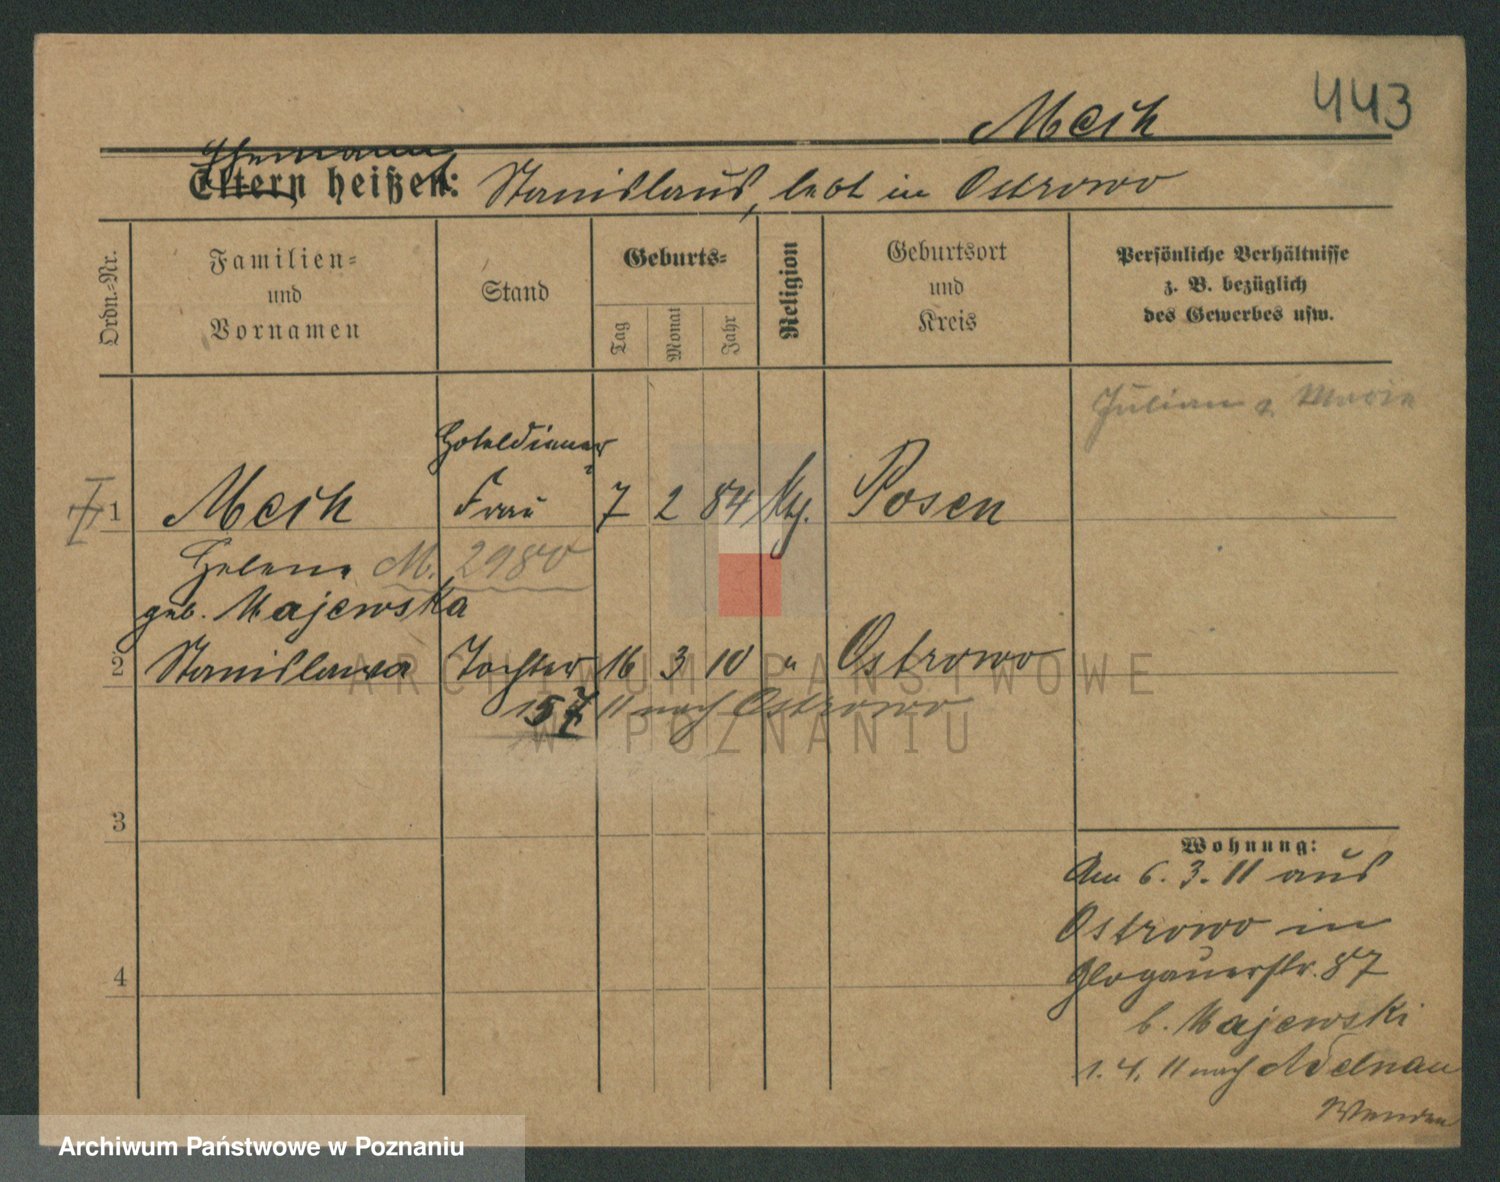 443
Mesk
Ehemann
Eltern heißen: Stanislaus, lebt in Ostrowo
Ordn.-Nr.
Familien-
und
Vornamen
Stand
Geburts-
Tag
Monat
Jahr
Religion
Geburtsort
und
Kreis
Persönliche Verhältnisse
z. B. bezüglich
des Gewerbes usw.
Julian
Hoteldiener
1 Frau 7 2 84 Posen
Helene M. 2980
geb. Majewska
2 Stanislawa Tochter 16 3 10 " Ostrowo
11 nach Ostrowo
3
4
Wohnung:
Am 6. 3. 11 aus
Ostrowo in
Glogauerstr. 87
b. Majewski
1. 4. 11 nach Adelnau
Wenden
ARCHIWUM PAŃSTWOWE
W POZNANIU
Archiwum Państwowe w Poznaniu